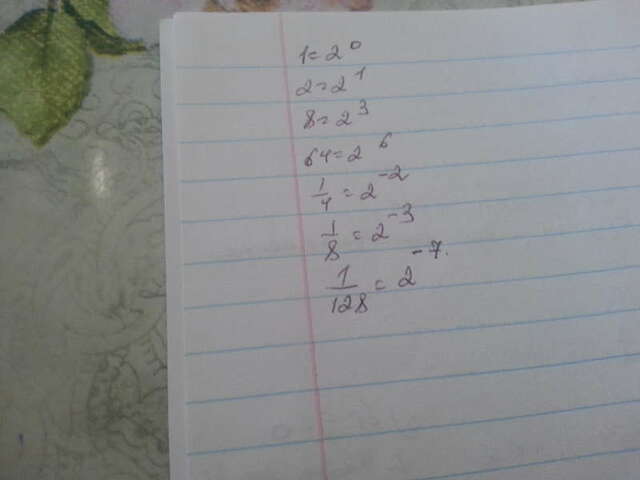 1=2⁰
2=2¹
8=2³
64=2⁶
1/4=2⁻²
1/8=2⁻³
1/128=2⁻⁷.